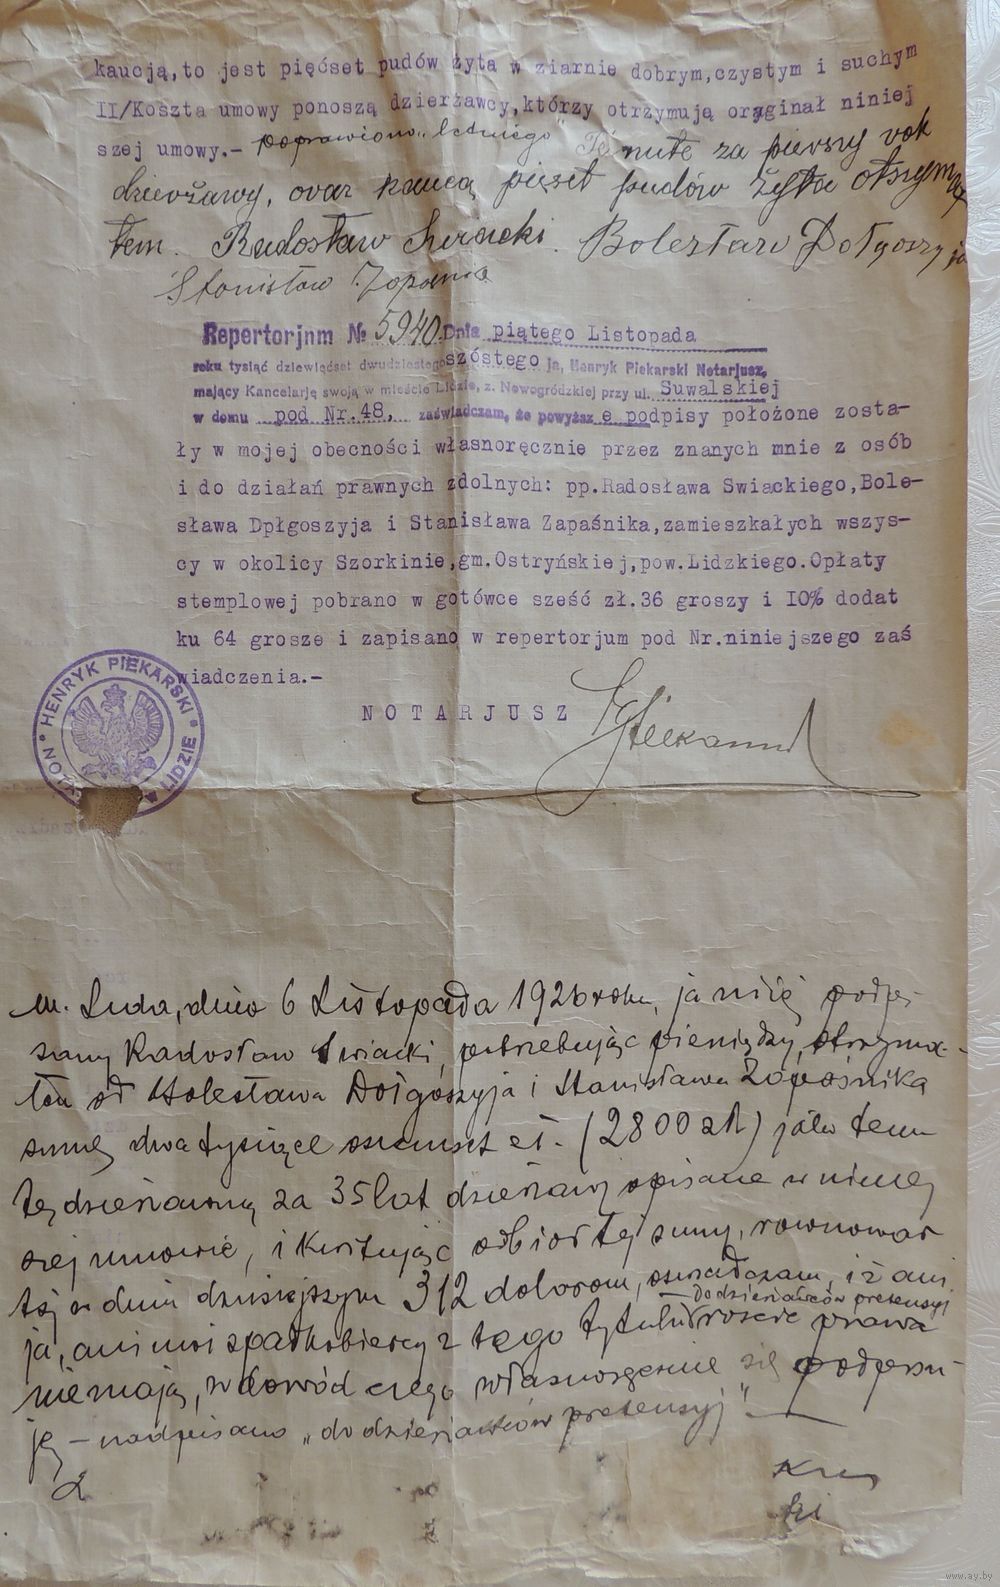 kaucją,to jest pięćset pudów żyta w ziarnie dobrym,czystym i suchym
II/Koszta umowy ponoszą dzierżawcy,którzy otrzymują oryginał niniej
szej umowy.- poprawiono „letniego" Tenutę za pierszy rok
dzierżawy, oraz kaucą pięset pudów żyta otrzyma
łem. Radosław Swiacki. Bolesław Dołgoszyja
Stanisław Zapaśnik
Repertorjum № 5940. Dnia piątego Listopada
roku tysiąc dziewięćset dwudziestego szóstego ja, Henryk Piekarski Notarjusz,
mający Kancelarję swoją w mieście Lidzie, z. Nowogródzkiej przy ul. Suwalskiej
w domu pod Nr.48, zaświadczam, że powyższe podpisy położone zosta-
ły w mojej obecności własnoręcznie przez znanych mnie z osób
i do działań prawnych zdolnych: pp.Radosława Swiackiego,Bole-
sława Dpłgoszyja i Stanisława Zapaśnika,zamieszkałych wszys-
cy w okolicy Szorkinie,gm.Ostryńskiej,pow.Lidzkiego.Opłaty
stemplowej pobrano w gotówce sześć zł.36 groszy i I0% dodat
ku 64 grosze i zapisano w repertorjum pod Nr.niniejszego zaś
wiadczenia.-
NOTARJUSZ
HENRYK PIEKARSKI
LIDZIE
m. Lida, dnia 6 Listopada 1926 roku, ja niżej podpi-
sany Radosław Swiacki, potrzebując pieniędzy, otrzyma-
łem od Bolesława Dołgoszyja i Stanisława Zapaśnika
sumę dwa tysiące osiemset zł. (2800 zł) jako tenu
tę dzierżawną za 35 lat dzierżawy opisane w niniej
szej umowie, i kwitując odbiór tej sumy, równowar
tej w dniu dzisiejszym 312 dolarom, oświadczam, iż ani
do dzierżawców pretensyj
ja, ani moi spadkobiercy z tego tytułu rościć prawa
nie mają, w dowód czego własnoręcznie się podpisu-
ję – nadpisano „do dzierżawców pretensyj"
www.ay.by